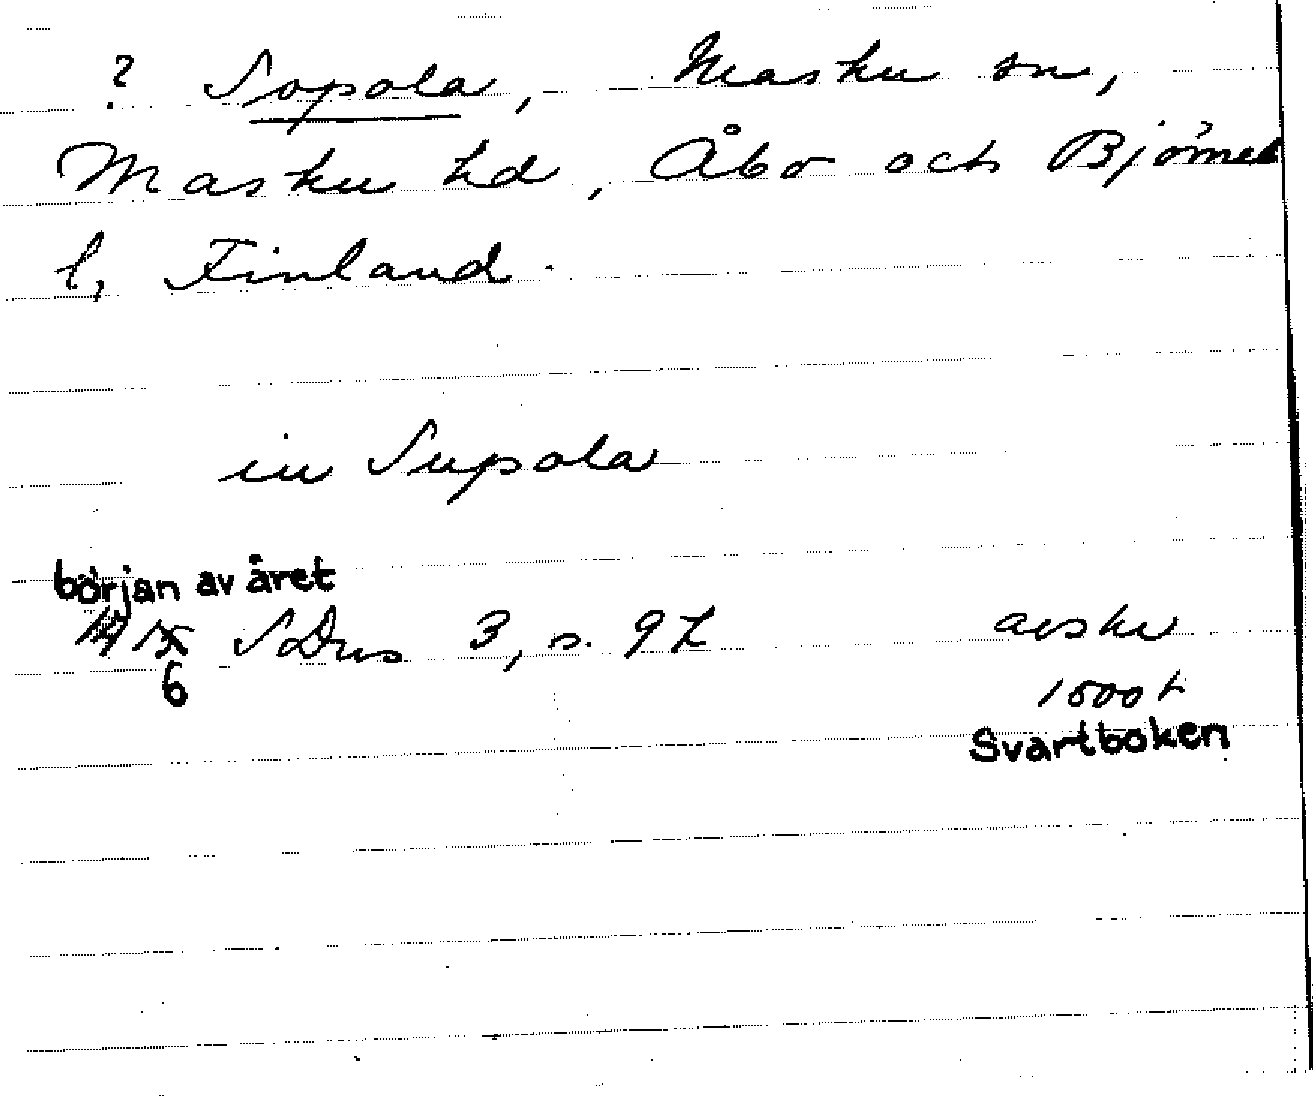 ? Sopola, Masku sn,
Masku hd, Åbo och Björneb
l, Finland.
in Supola
början av året
1415 SDns 3, s. 92 avskr
6 1500 t
Svartboken